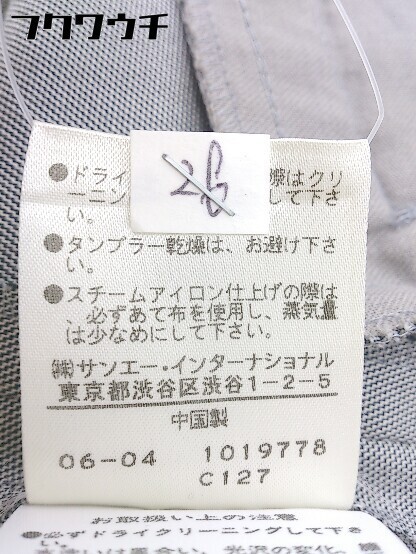 フクワウチ
26
●ドライ 際はクリ
ーニン して下さ
い。
●タンブラー乾燥は、お避け下さ
い。
●スチームアイロン仕上げの際は
、必ずあて布を使用し、蒸気量
は少なめにして下さい。
㈱サンエー・インターナショナル
東京都渋谷区渋谷1-2-5
中国製
06-04 1019778
C127
お取扱い上の注意
●必ずドライクリーニングして下さ
い。